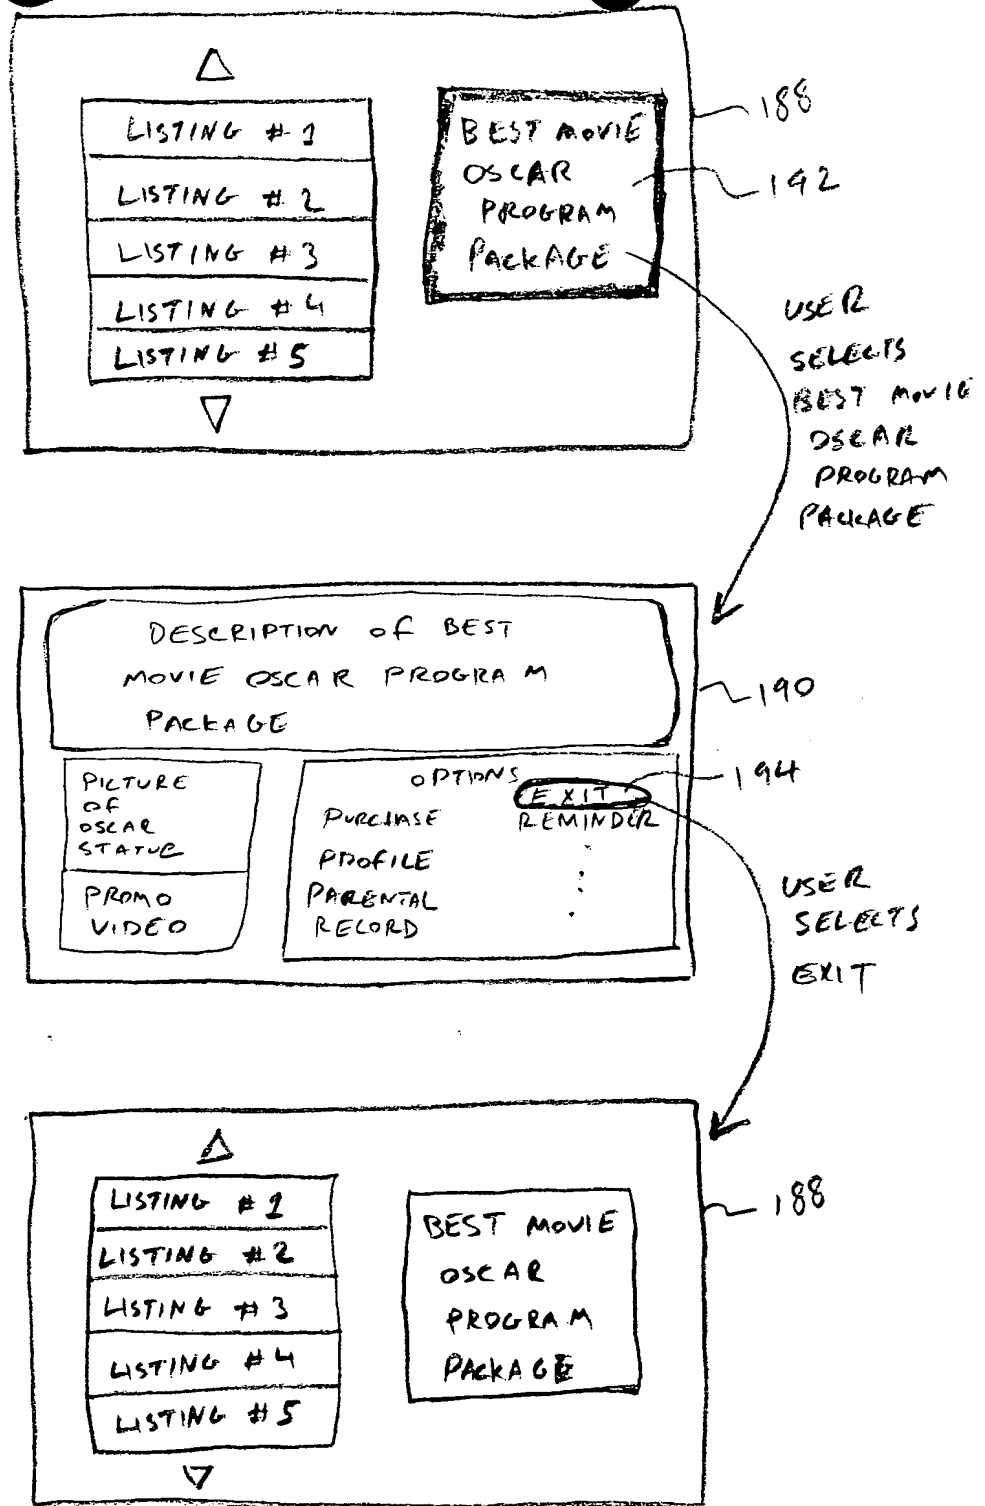 LISTING # 1
LISTING # 2
LISTING # 3
LISTING # 4
LISTING # 5
BEST MOVIE
OSCAR
PROGRAM
PACKAGE
188
192
USER
SELECTS
BEST MOVIE
OSCAR
PROGRAM
PACKAGE
DESCRIPTION OF BEST
MOVIE OSCAR PROGRAM
PACKAGE
190
PICTURE
OF
OSCAR
STATUE
PROMO
VIDEO
OPTIONS
EXIT
PURCHASE REMINDER
PROFILE
PARENTAL
RECORD
194
USER
SELECTS
EXIT
LISTING # 1
LISTING # 2
LISTING # 3
LISTING # 4
LISTING # 5
BEST MOVIE
OSCAR
PROGRAM
PACKAGE
188